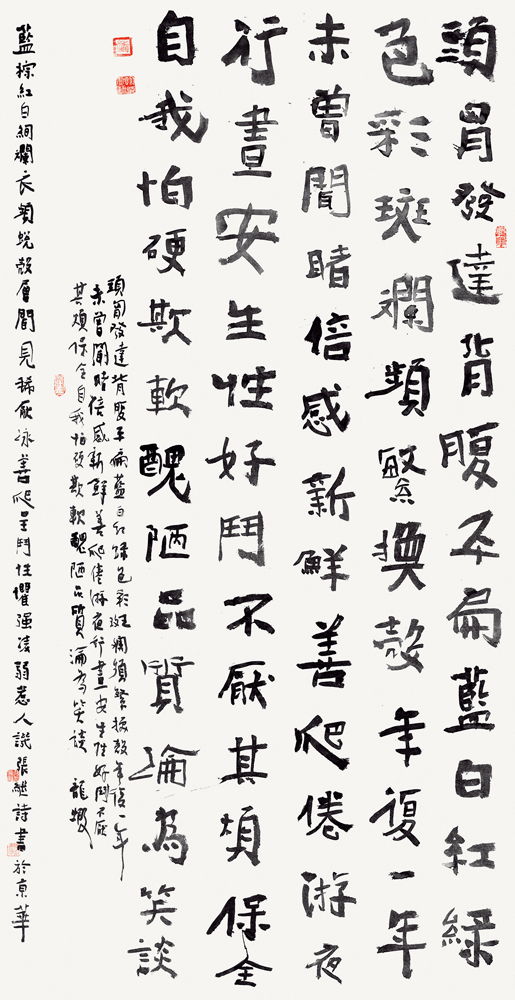 頭胃發達背腹平扁藍白紅綠
色彩斑斕頻繁換殼年復一年
未曾聞睹倍感新鮮善爬倦游夜
行晝安生性好鬥不厭其煩保全
自我怕硬欺軟醜陋品質淪為笑談
頭胃發達背腹平扁藍白紅綠色彩斑斕頻繁換殼年復一年
未曾聞睹倍感新鮮善爬倦游夜行晝安生性好鬥不厭
其煩保全自我怕硬欺軟醜陋品質淪為笑談 龍蝦
藍棕紅白絢斕衣頻蛻殼層間見稀厭泳善爬呈鬥性懼强凌弱惹人譏張 詩書於東華